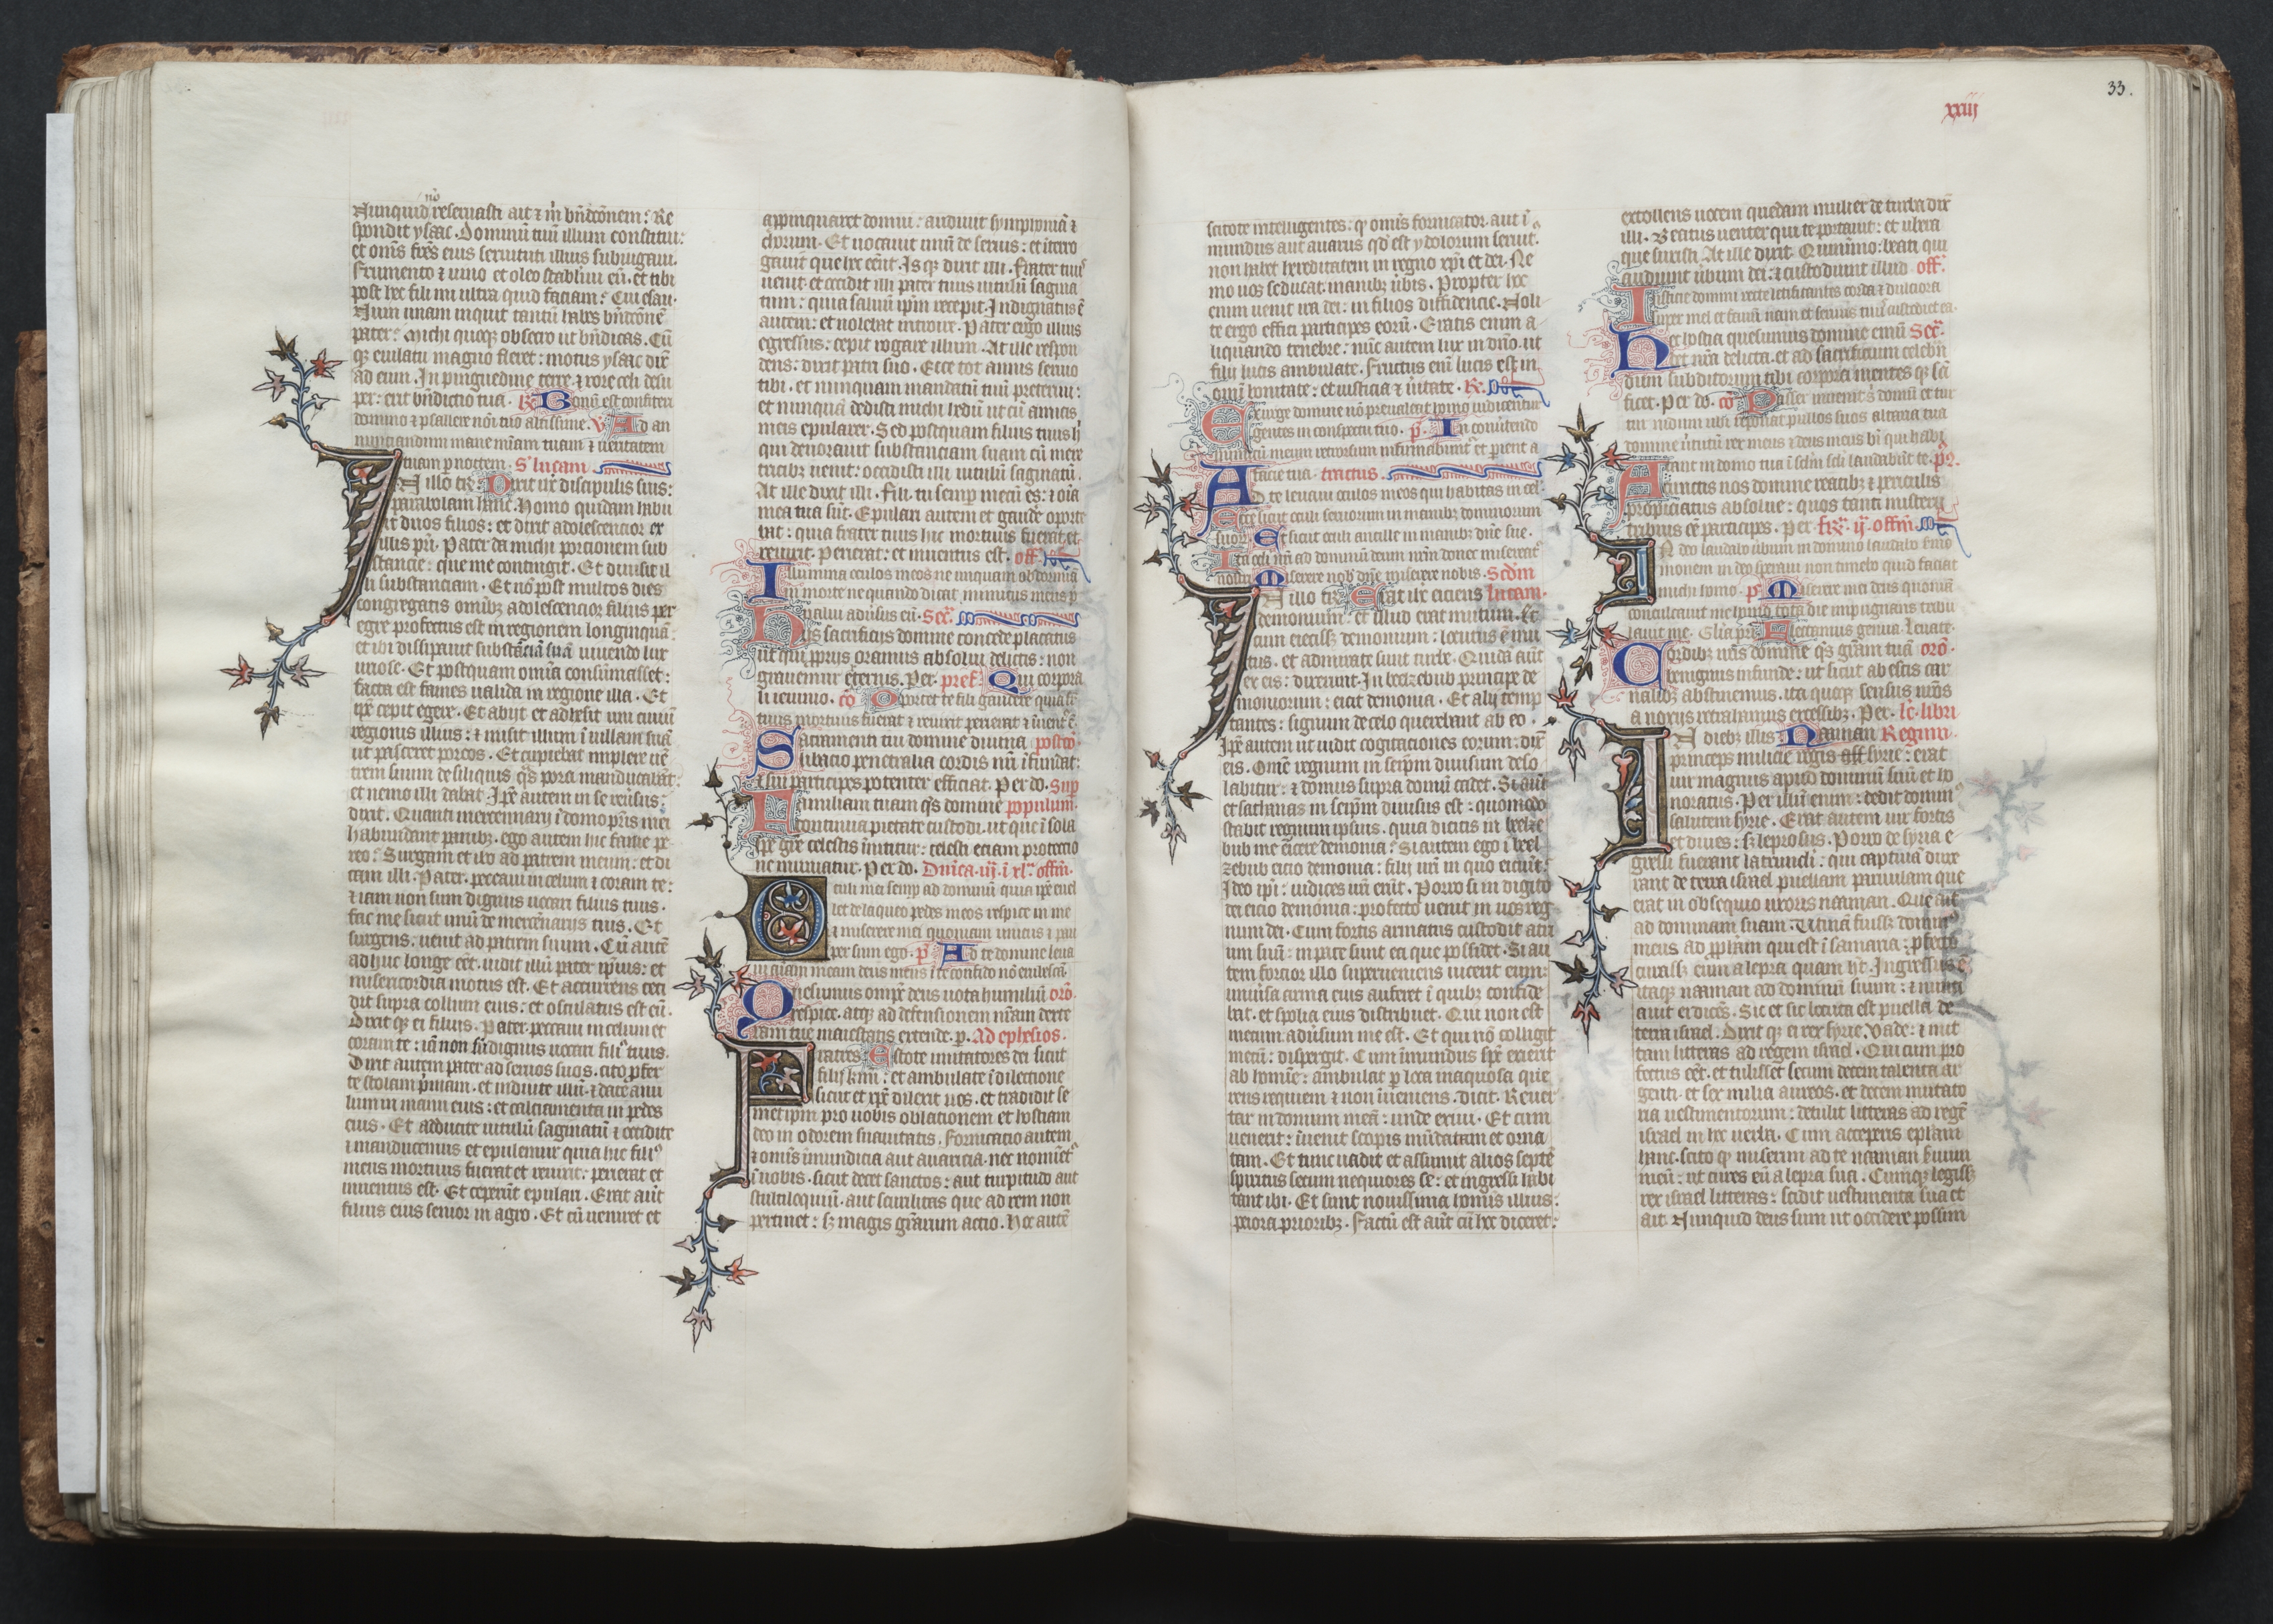 nō
Nunquid reseruasti ait ⁊ m̄ bn̄dcōnem? Re
spondit ysaac. Dominū tuū illum constitui:
et om̄s frēs eius seruituti illius subiugaui.
Frumento ⁊ uino et oleo stabiliui eū. et tibi
post hec fili mi ultra quid faciam? Cui esau.
Num unam inquit tantū habes bn̄dcōnē
pater? Michi quoqꝫ obsecro ut bn̄dicas. Cū
qꝫ eiulatu magno fleret: motus ysaac dix̄
ad eum. In pinguedine terre ⁊ rore celi desu
per: erit bn̄dictio tua. R̄. Bonū est confiteri
domino ⁊ psallere noī tuo altissime. V. Ad an
nunciandum mane mīam tuam ⁊ ueritatem
tuam p noctem. S. lucam
In illo tr̄: Dixit ih̄c discipulis suis:
parabolam hanc. Homo quidam habu
it duos filios: et dixit adolescentior ex
illis pr̄i. Pater da michi portionem sub
stancie: que me contingit. Et diuisit il
li substanciam. Et nō post multos dies
congregatis omībꝫ adolescencior filius per
egre profectus est in regionem longinquā:
et ibi dissipauit substāciā suā uiuendo lux
uriose. Et postquam omīa consūmasset:
facta est fames ualida in regione illa. Et
ip̄e cepit egere. Et abijt et adhesit uni ciuiū
regionis illius: ⁊ misit illum ī uillam suā
ut pasceret porcos. Et cupiebat implere uē
trem suum de siliquis qs̄ porci manducabāt:
et nemo illi dabat. Ip̄e autem in se reūsus:
dixit. Quanti mercennarij ī domo pr̄is mei
habundant panibꝫ. ego autem hic fame pe
reo? Surgam et ibo ad patrem meum: et di
cam illi. Pater. peccaui in celum ⁊ coram te:
⁊ iam non sum dignus uocari filius tuus.
fac me sicut unū de mercēnarijs tuis. Et
surgens: uenit ad patrem suum. Cū autē
adhuc longe eēt. uidit illū pater ip̄ius: et
misericordia motus est. Et accurrens ceci
dit supra collum eius: et osculatus est eū.
Dixit qꝫ ei filius. Pater. peccaui in celum et
coram te: iā non sū dignus uocari filiꝰ tuus.
Dixit autem pater ad seruos suos. cito pfer
te stolam p̄mam. et induite illū: ⁊ date anu
lum in manu eius: et calciamenta in pedes
eius. Et adducite uitulū saginatū ⁊ occidite
⁊ manducemus et epulemur quia hic filiꝰ
meus mortuus fuerat et reuixit: perierat et
inuentus est. Et ceperūt epulari. Erat aūt
filius eius senior in agro. Et cū ueniret et
appinquaret domui: audiuit symphoniā ⁊
chorum. Et uocauit unū de seruis: et ītero
gauit que hec eēnt. Is qꝫ dixit illi. Frater tuuꝰ
uenit. et occidit illi pater tuus uitulū sagina
tum: quia saluū ip̄m recepit. Indignatus ē
autem: et nolebat introire. Pater ergo illius
egressus: cepit rogare illum. At ille respon
dens: dixit patri suo. Ecce tot annis seruio
tibi. et nunquam mandatū tuū preterii:
et nunquā dedisti michi hedū ut cū amicis
meis epularer. Sed postquam filius tuus h̄
qui deuorauit substanciam suam cū mere
tricibꝫ uenit: occidisti illi uitulū saginatū.
At ille dixit illi. Fili tu semp mecū es: ⁊ oīa
mea tua sūt. Epulari autem et gaudē oporte
bat: quia frater tuus hic mortuus fuerat. et
reuixit. perierat: et inuentus est. off.
Illumina oculos meos ne unquam obdormiā
in morte ne quando dicat inimicus meus p
ualui aduersus eū. Sec̄.
His sacrificijs domine concede placatus
ut qui proprijs oramus absolui delictis: non
grauemur exteris. Per. pref. Qui corpora
li ieiunio. cō. Oportet te fili gaudere quia fr̄
tuus mortuus fuerat ⁊ reuixit perierat ⁊ inuent ē.
Sacramenti tui domine diuina postcō.
libatio penetralia cordis nr̄i īfundat:
⁊ sui participes potenter efficiat. Per do. Sup
Familiam tuam qs̄ domine populum.
continua pietate custodi. ut que ī sola
spe gr̄e celestis īnititur: celesti eciam protectio
ne muniatur. Per do. Dn̄ica. iij. ī xl. offm̄.
Oculi mei semp ad dominū quia ip̄e euel
let de laqueo pedes meos respice in me
⁊ miserere mei quoniam unicus ⁊ pau
per sum ego. p̄. Ad te domine leua
ui aīam meam deus meus ī te confido nō erubescā.
Quesumus omp̄s deus uota humiliū orō.
respice. atqꝫ ad defensionem nr̄am dexte
ram tue maiestatis extende. p. Ad ephesios.
Fratres. Estote imitatores dei sicut
filij k̄mi: et ambulate ī dilectione
sicut et xp̄c dilexit uos. et tradidit se
metipm̄ pro uobis oblationem et hostiam
deo in odorem suauitatis. Fornicatio autem
⁊ omīs īmundicia aut auaricia. nec nomiet̄ꝰ
ī uobis. sicut decet sanctos: aut turpitudo aut
stultiloquiū. aut scurilitas que ad rem non
pertinet: sꝫ magis gr̄arum actio. Hoc autē
33.
xxiij
scitote intelligentes: qꝫ omīs fornicator. aut ī
mundus aut auarus qd̄ est ydolorum seruit.
non habet hereditatem in regno xp̄i et dei. Ne
mo uos seducat inanibꝫ ūbis. Propter hec
enim uenit ira dei: in filios diffidencie. Noli
te ergo effici participes eorū. Eratis enim a
liquando tenebre: nūc autem lux in dn̄o. ut
filij lucis ambulate. Fructus eni lucis est in
omī bonitate: et iusticia ⁊ ūitate. R̄.
Exurge domine nō preualeat homo iudicentur
gentes in conspectu tuo. p̄. In conuertendo
inimicū meum retrorsum infirmabunt̄ et pient a
facie tua. tractus.
Ad te leuaui oculos meos qui habitas in cel.
Ecce sicut oculi seruorum in manibꝫ dominorum
suorꝫ Et sicut oculi ancille in manibꝫ dn̄e sue.
Ita oculi nr̄i ad dominū deum nr̄m donec misereat̄
nostri. Miserere nob̄ dn̄e miserere nobis. Scdm̄
In illo tr̄: Erat ih̄c eiciens lucam.
demonium: et illud erat mutum. Et
cum eiecissꝫ demonium: locutus ē mu
tus. et admirate sunt turbe. Quidā aūt
ex eis: dixerunt. In beelzebub principe de
moniorum: eicit demonia. Et alij temp
tantes: signum de celo querebant ab eo.
Ip̄e autem ut uidit cogitaciones eorum: dix̄
eis. Omē regnum in seip̄m diuisum deso
labitur: ⁊ domus supra domū cadet. Si aūt
et sathanas in seip̄m diuisus est: quomodo
stabit regnum ipsius. quia dicitis in beelze
bub me eicere demonia? Si autem ego ī beel
zebub eicio demonia: filij ur̄i in quo eiciūt?
Ideo ip̄i: iudices ur̄i erūt. Porro si in digito
dei eicio demonia: profecto uenit in uos reg
num dei. Cum fortis armatus custodit atri
um suū: in pace sunt ea que possidet. Si au
tem forcior illo superueniens uicerit eum:
uniūsa arma eius auferet ī quibꝫ confide
bat. et spolia eius distribuet. Qui non est
mecum. aduersum me est. Et qui nō colligit
mecū: dispergit. Cum īmundus sp̄c exierit
ab homīe: ambulat p loca inaquosa que
rens requiem ⁊ non īueniens. dicit. Reuer
tar in domum meā: unde exiui. Et cum
uenerit: īuenit scopis mūdatam et orna
tam. Et tunc uadit et assumit alios septē
spiritus secum nequiores se: et ingressi habi
tant ibi. Et sunt nouissima homīs illius:
peiora prioribꝫ. Factū est aūt cū hec diceret:
extollens uocem quedam mulier de turba dix̄
illi. Beatus uenter qui te portauit: et ubera
que suxisti. At ille dixit. Quinīmo: beati qui
audiunt ūbum dei: ⁊ custodiunt illud. off.
Iusticie domini recte letificantes corda ⁊ dulciora
super mel et fauū nam et seruus tuus custodiet ea.
Hec hostia quesumus domine emū Sec̄.
det nr̄a delicta. et ad sacrificium celebrā
dum subditorum tibi corpora mentes qꝫ scī
ficet. Per do. cō. Passer inuenit s̄ domū et tur
tur nidum ubi reponat pullos suos altaria tua
domine ūtutū rex meus ⁊ deus meus bī qui habi
tant in domo tua ī sclm̄ scli laudabūt te. p̄o.
A cunctis nos domine reatibꝫ ⁊ periculis
propiciatus absolue: quos tanti misterij
tribuis eē participes. Per. fr̄. ij. offm̄.
In deo laudabo ūbum in domino laudabo ser̄mo
nem in deo speraui non timebo quid faciat
michi homo. p̄. Miserere mei deus quoniā
conculcauit me homo tota die impugnans tribu
lauit me. Gl̄ia pr̄i. Flectamus genua. Leuate.
Cordibꝫ nr̄is domine qs̄ gr̄am tuā orō.
benignus infunde: ut sicut ab escis car
nalibꝫ abstinemus. ita quoqꝫ sensus nr̄os
a noxijs retrahamus excessibꝫ. Per. lc̄. libri
In diebꝫ illis. Naaman Regum.
princeps milicie regis syrie: erat
uir magnus apud dominū suū et ho
noratus. Per illū enim: dedit dominꝰ
salutem syrie. Erat autem uir fortis
et diues: sꝫ leprosus. Porro de syria e
gressi fuerant latrunculi: qui captiuā duxe
rant de terra israel puellam paruulam que
erat in obsequio uxoris naaman. Que ait
ad dominam suam. Utinā fuissꝫ dominꝰ
meus ad pphetam qui est ī samaria: pfecto
curassꝫ eum a lepra quam hꝫ. Ingressus ē
itaqꝫ naaman ad dominū suum: ⁊ nunci
auit ei dicēs. Sic et sic locuta est puella de
terra israel. Dixit qꝫ ei rex syrie. Vade: ⁊ mit
tam litteras ad regem israel. Qui cum pro
fectus eēt. et tulisset secum decem talenta ar
genti. et sex milia aureos. et decem mutato
ria uestimentorum: detulit litteras ad regē
israel in hec uerba. Cum acceperis eplam
hanc. scito qꝫ miserim ad te naaman seruum
meū: ut cures eū a lepra sua. Cumqꝫ legissꝫ
rex israel litteras: scidit uestimenta sua et
ait. Nunquid deus sum ut occidere possim